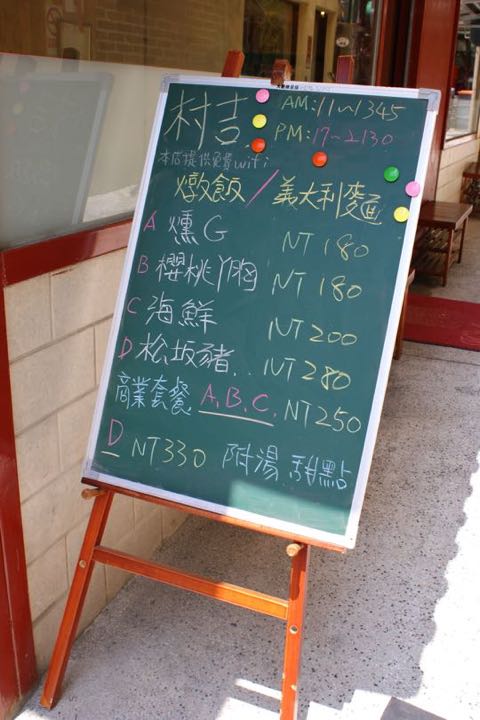 村吉 AM:11~1345
PM:17~2130
本店提供免費wifi
燉飯/義大利麵
A 燻G NT 180
B 櫻桃丫胸 NT 180
C 海鮮 NT 200
D 松坂豬.. NT 280
商業套餐 A.B.C. NT 250
D NT330 附湯 甜點